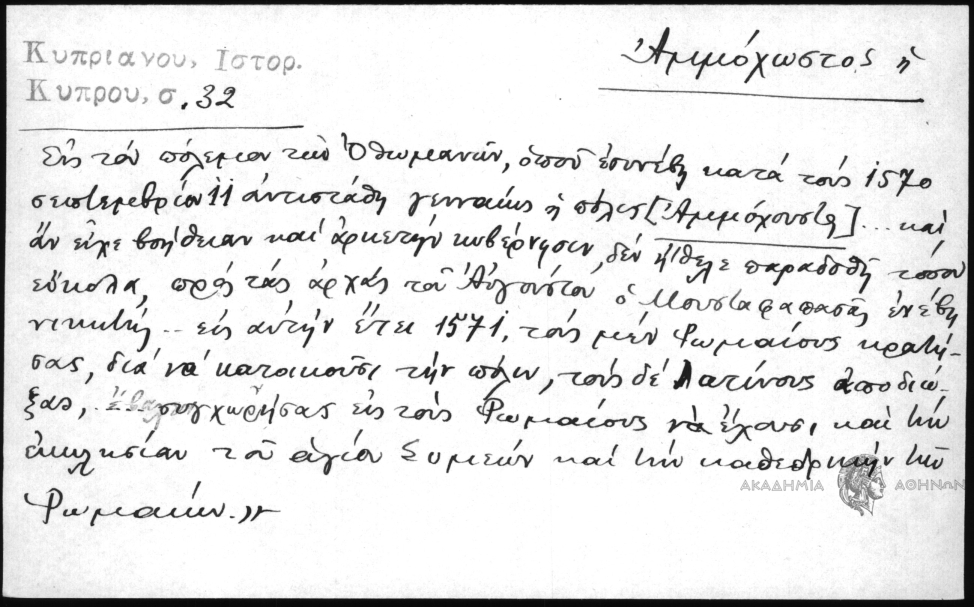 Κυπριανου, Ιστορ.
Κυπρου, σ. 32
Ἀμμόχωστος ἡ
Εἰς τὸν πόλεμον τῶν Ὀθωμανῶν, ὁποῦ ἐσυνέβη κατὰ τοὺς 1570
σεπτεμβρίου 11 ἀντιστάθη γενναίως ἡ πόλις [Ἀμμόχουστη]... καὶ
ἂν εἶχε βοήθειαν καὶ ἀρκετὴν κυβέρνησιν, δὲν ἤθελε παραδοθῆ τόσον
εὔκολα, πρὸς τὰς ἀρχὰς τοῦ Αὐγούστου ὁ Μουσταφαπασᾶς ἐνέβη
νικητὴς .. εἰς αὐτὴν ἔτει 1571, τοὺς μὲν Ῥωμαίους κρατή-
σας, διὰ νὰ κατοικοῦσι τὴν πόλιν, τοὺς δὲ Λατίνους ἀποδιώ-
ξας, συγχωρήσας εἰς τοὺς Ῥωμαίους νὰ ἔχουσι καὶ τὴν
ἐκκλησίαν τοῦ ἁγίου Συμεὼν καὶ τὴν καθεδρικὴν τῶν
Ῥωμαίων.»
ΑΚΑΔΗΜΙΑ ΑΘΗΝΩΝ